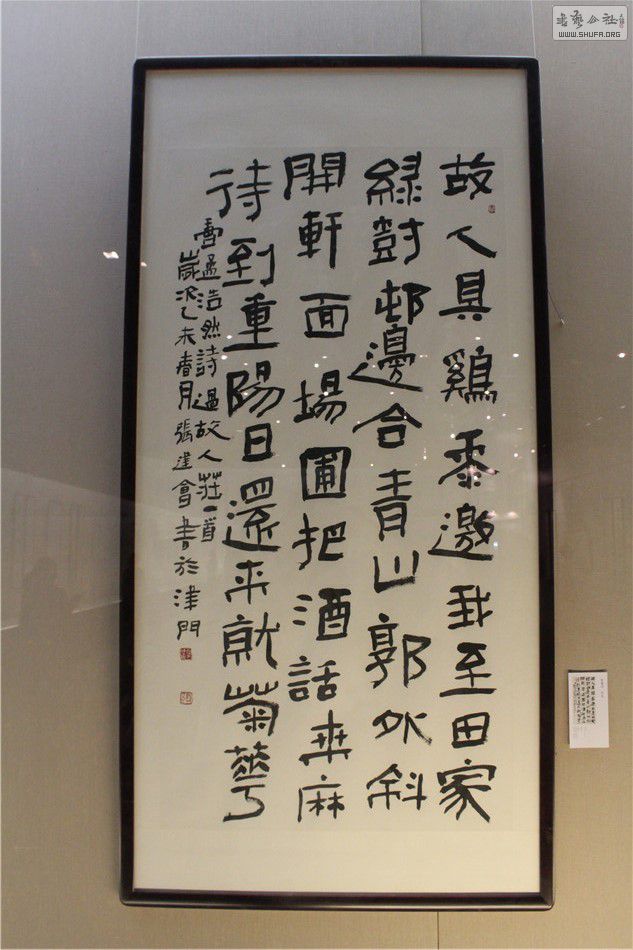 故人具鷄黍邀我至田家
緑尌邨邊合青山郭外斜
開軒面場圃把酒話桒麻
待到重陽日還来就菊蕐
孟浩然詩過故人莊一首
歲次乙未春月張建會書於津門
書藝公社
WWW.SHUFA.ORG